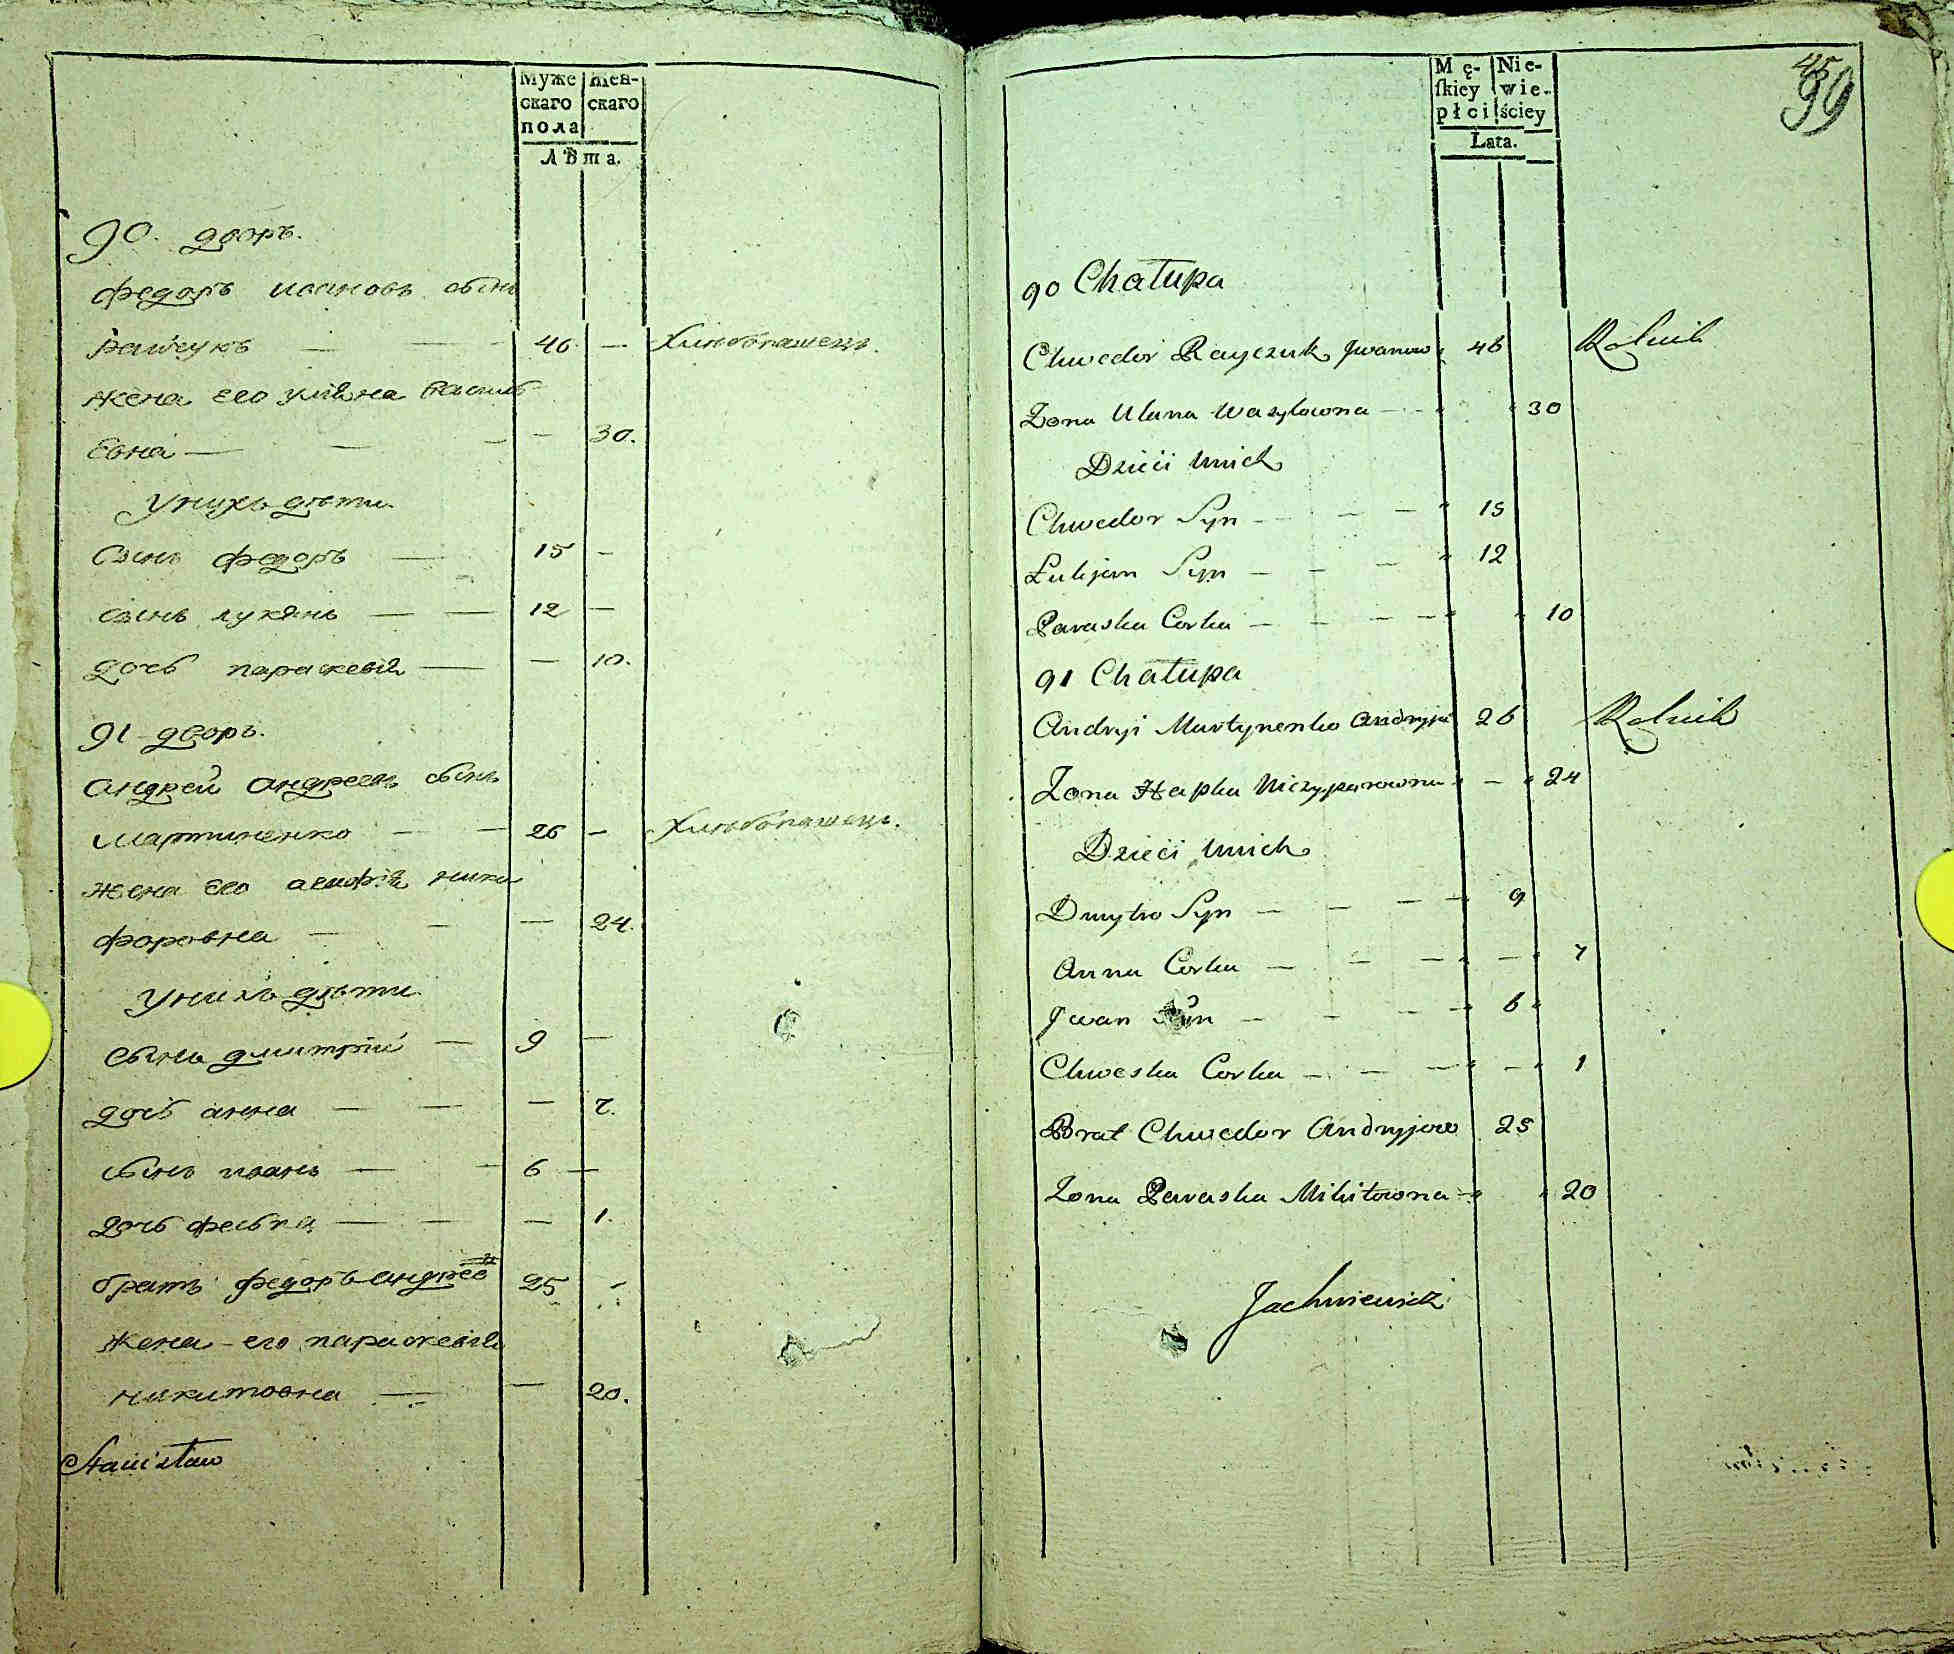 Муже
скаго
пола
Жен-
скаго
Лѣта.
90. дворъ.
федоръ ивановъ сынъ
райчукъ — — — 46 — Хлѣбопашецъ.
жена его уліяна василь
евна — — — — 30.
Унихъ дѣти
Сынъ федоръ — 15 —
Сынъ лукянъ — — 12 —
дочь параскевія — — 10.
91 дворъ.
андрей андреевъ сынъ
мартиненко — — 26 — Хлѣбопашецъ.
жена его агафія ники
форовна — — — 24.
Унихъ дѣти
сынъ дмитрій — 9 —
дочь анна — — — 7.
сынъ иванъ — — 6 —
дочь феська — — — 1.
братъ федоръ андреевъ 25 -
жена его параскевія
никитовна — — 20.
Stanisław
Mę-
skiey
płci
Nie-
wie-
ściey
Lata.
45
99
90 Chałupa
Chwedor Rayczuk Jwanow 46 Rolnik
Żona Ulana Wasylowna — 30
Dzieci Unich
Chwedor Syn — — — 15
Łukjan Syn — — — 12
Paraska Corka — — — — 10
91 Chałupa
Andryi Martynenko Andryjo 26 Rolnik
Żona Hapka Niczyparowna — 24
Dzieci Unich
Dmytro Syn — — — — 9
Anna Corka — — — — 7
Jwan Syn — — — — 6
Chweska Corka — — — — 1
Brat Chwedor Andryjow 25
Żona Paraska Mikitowna — 20
Jachniewicz